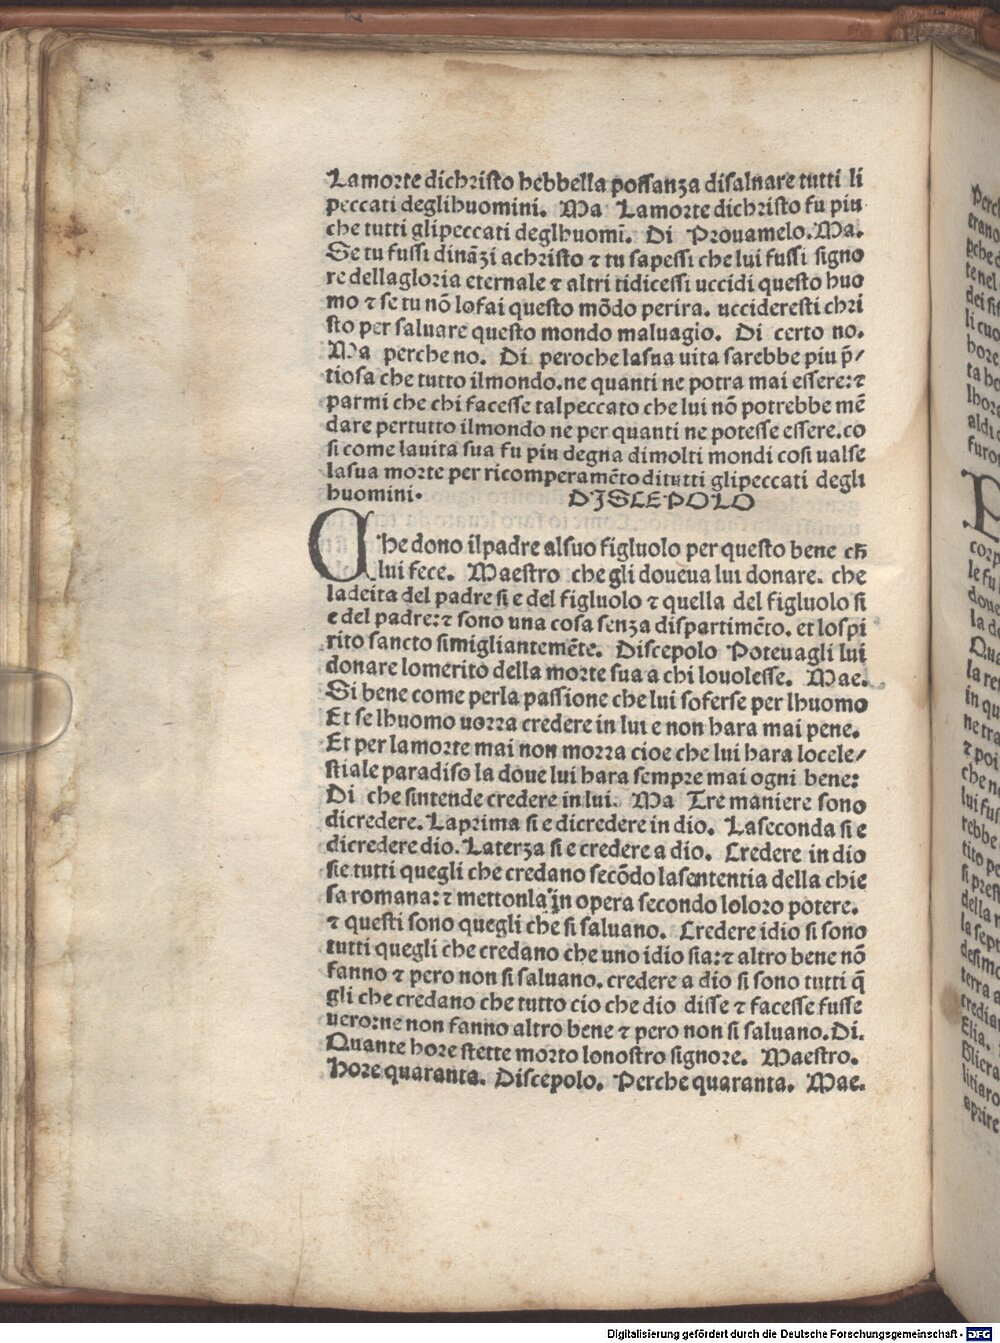 Lamorte dichristo hebbella possanza disalnare tutti li
peccati deglihuomini. Ma Lamorte dichristo fu piu
che tutti glipeccati deglhuomĩ. Di Prouamelo. Ma.
Se tu fussi dinãzi achristo ⁊ tu sapessi che lui fussi signo
re dellagloria eternale ⁊ altri tidicessi uccidi questo huo
mo ⁊ se tu nõ lofai questo mõdo perira. uccideresti chri
sto per saluare questo mondo maluagio. Di certo no.
Ma perche no. Di peroche lasua uita sarebbe piu p̃/
tiosa che tutto ilmondo. ne quanti ne potra mai essere: ⁊
parmi che chi facesse talpeccato che lui nõ potrebbe mẽ
dare pertutto ilmondo ne per quanti ne potesse essere. co
si come lauita sua fu piu degna dimolti mondi cosi ualse
lasua morte per ricomperamẽto ditutti glipeccati degli
huomini. DISCEPOLO
Che dono ilpadre alsuo figluolo per questo bene cħ
lui fece. Maestro che gli doueua lui donare. che
ladeita del padre si e del figluolo ⁊ quella del figluolo si
e del padre: ⁊ sono una cosa senza dispartimẽto. et lospi
rito sancto simigliantemẽte. Discepolo Poteuagli lui
donare lomerito della morte sua a chi louolesse. Mae.
Si bene come perla passione che lui soferse per lhuomo
Et se lhuomo uorra credere in lui e non hara mai pene.
Et per lamorte mai non morra cioe che lui hara locele/
stiale paradiso la doue lui hara sempre mai ogni bene:
Di che sintende credere in lui. Ma Tre maniere sono
dicredere. Laprima si e dicredere in dio. Laseconda si e
dicredere dio. Laterza si e credere a dio. Credere in dio
sie tutti quegli che credano secõdo lasententia della chie
sa romana: ⁊ mettonla in opera secondo loloro potere.
⁊ questi sono quegli che si saluano. Credere idio si sono
tutti quegli che credano che uno idio sia: ⁊ altro bene nõ
fanno ⁊ pero non si saluano. credere a dio si sono tutti q̃
gli che credano che tutto cio che dio disse ⁊ facesse fusse
uero: ne non fanno altro bene ⁊ pero non si saluano. Di.
Quante hore stette morto lonostro signore. Maestro.
Hore quaranta. Discepolo. Perche quaranta. Mae.
Digitalisierung gefördert durch die Deutsche Forschungsgemeinschaft - DFG